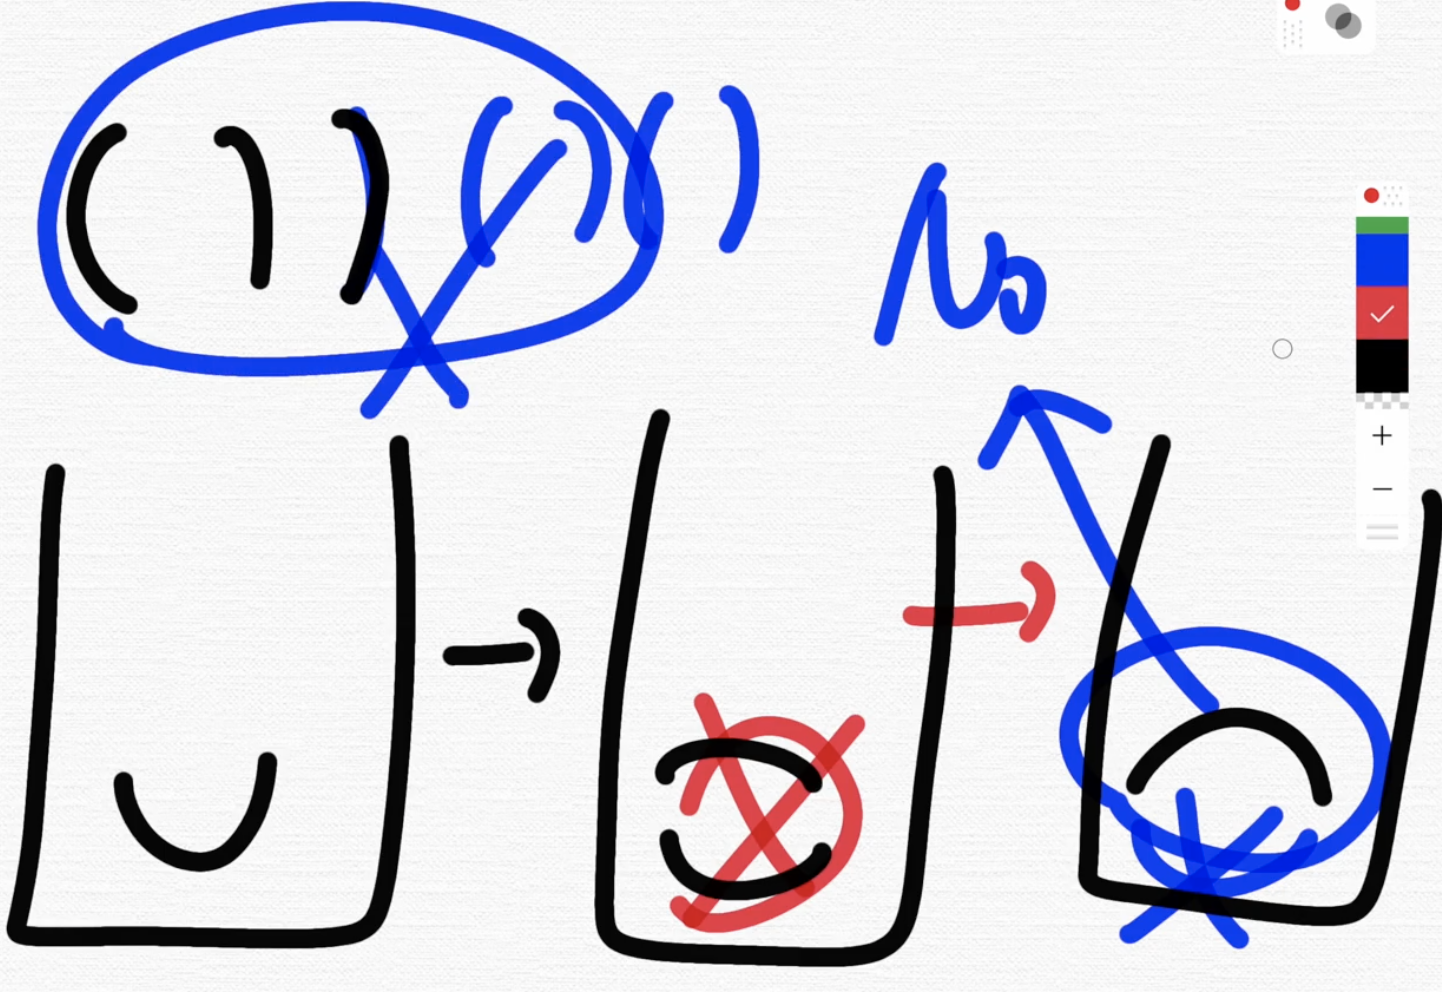 ( ) ) ( ) ( )
No